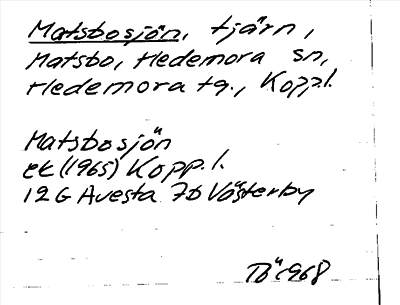 Matsbosjön, tjärn,
Matsbo, Hedemora sn,
Hedemora tg., Koppl.
Matsbosjön
ek (1965) Kopp.l.
12 G Avesta 7b Västerby
Tö 1968